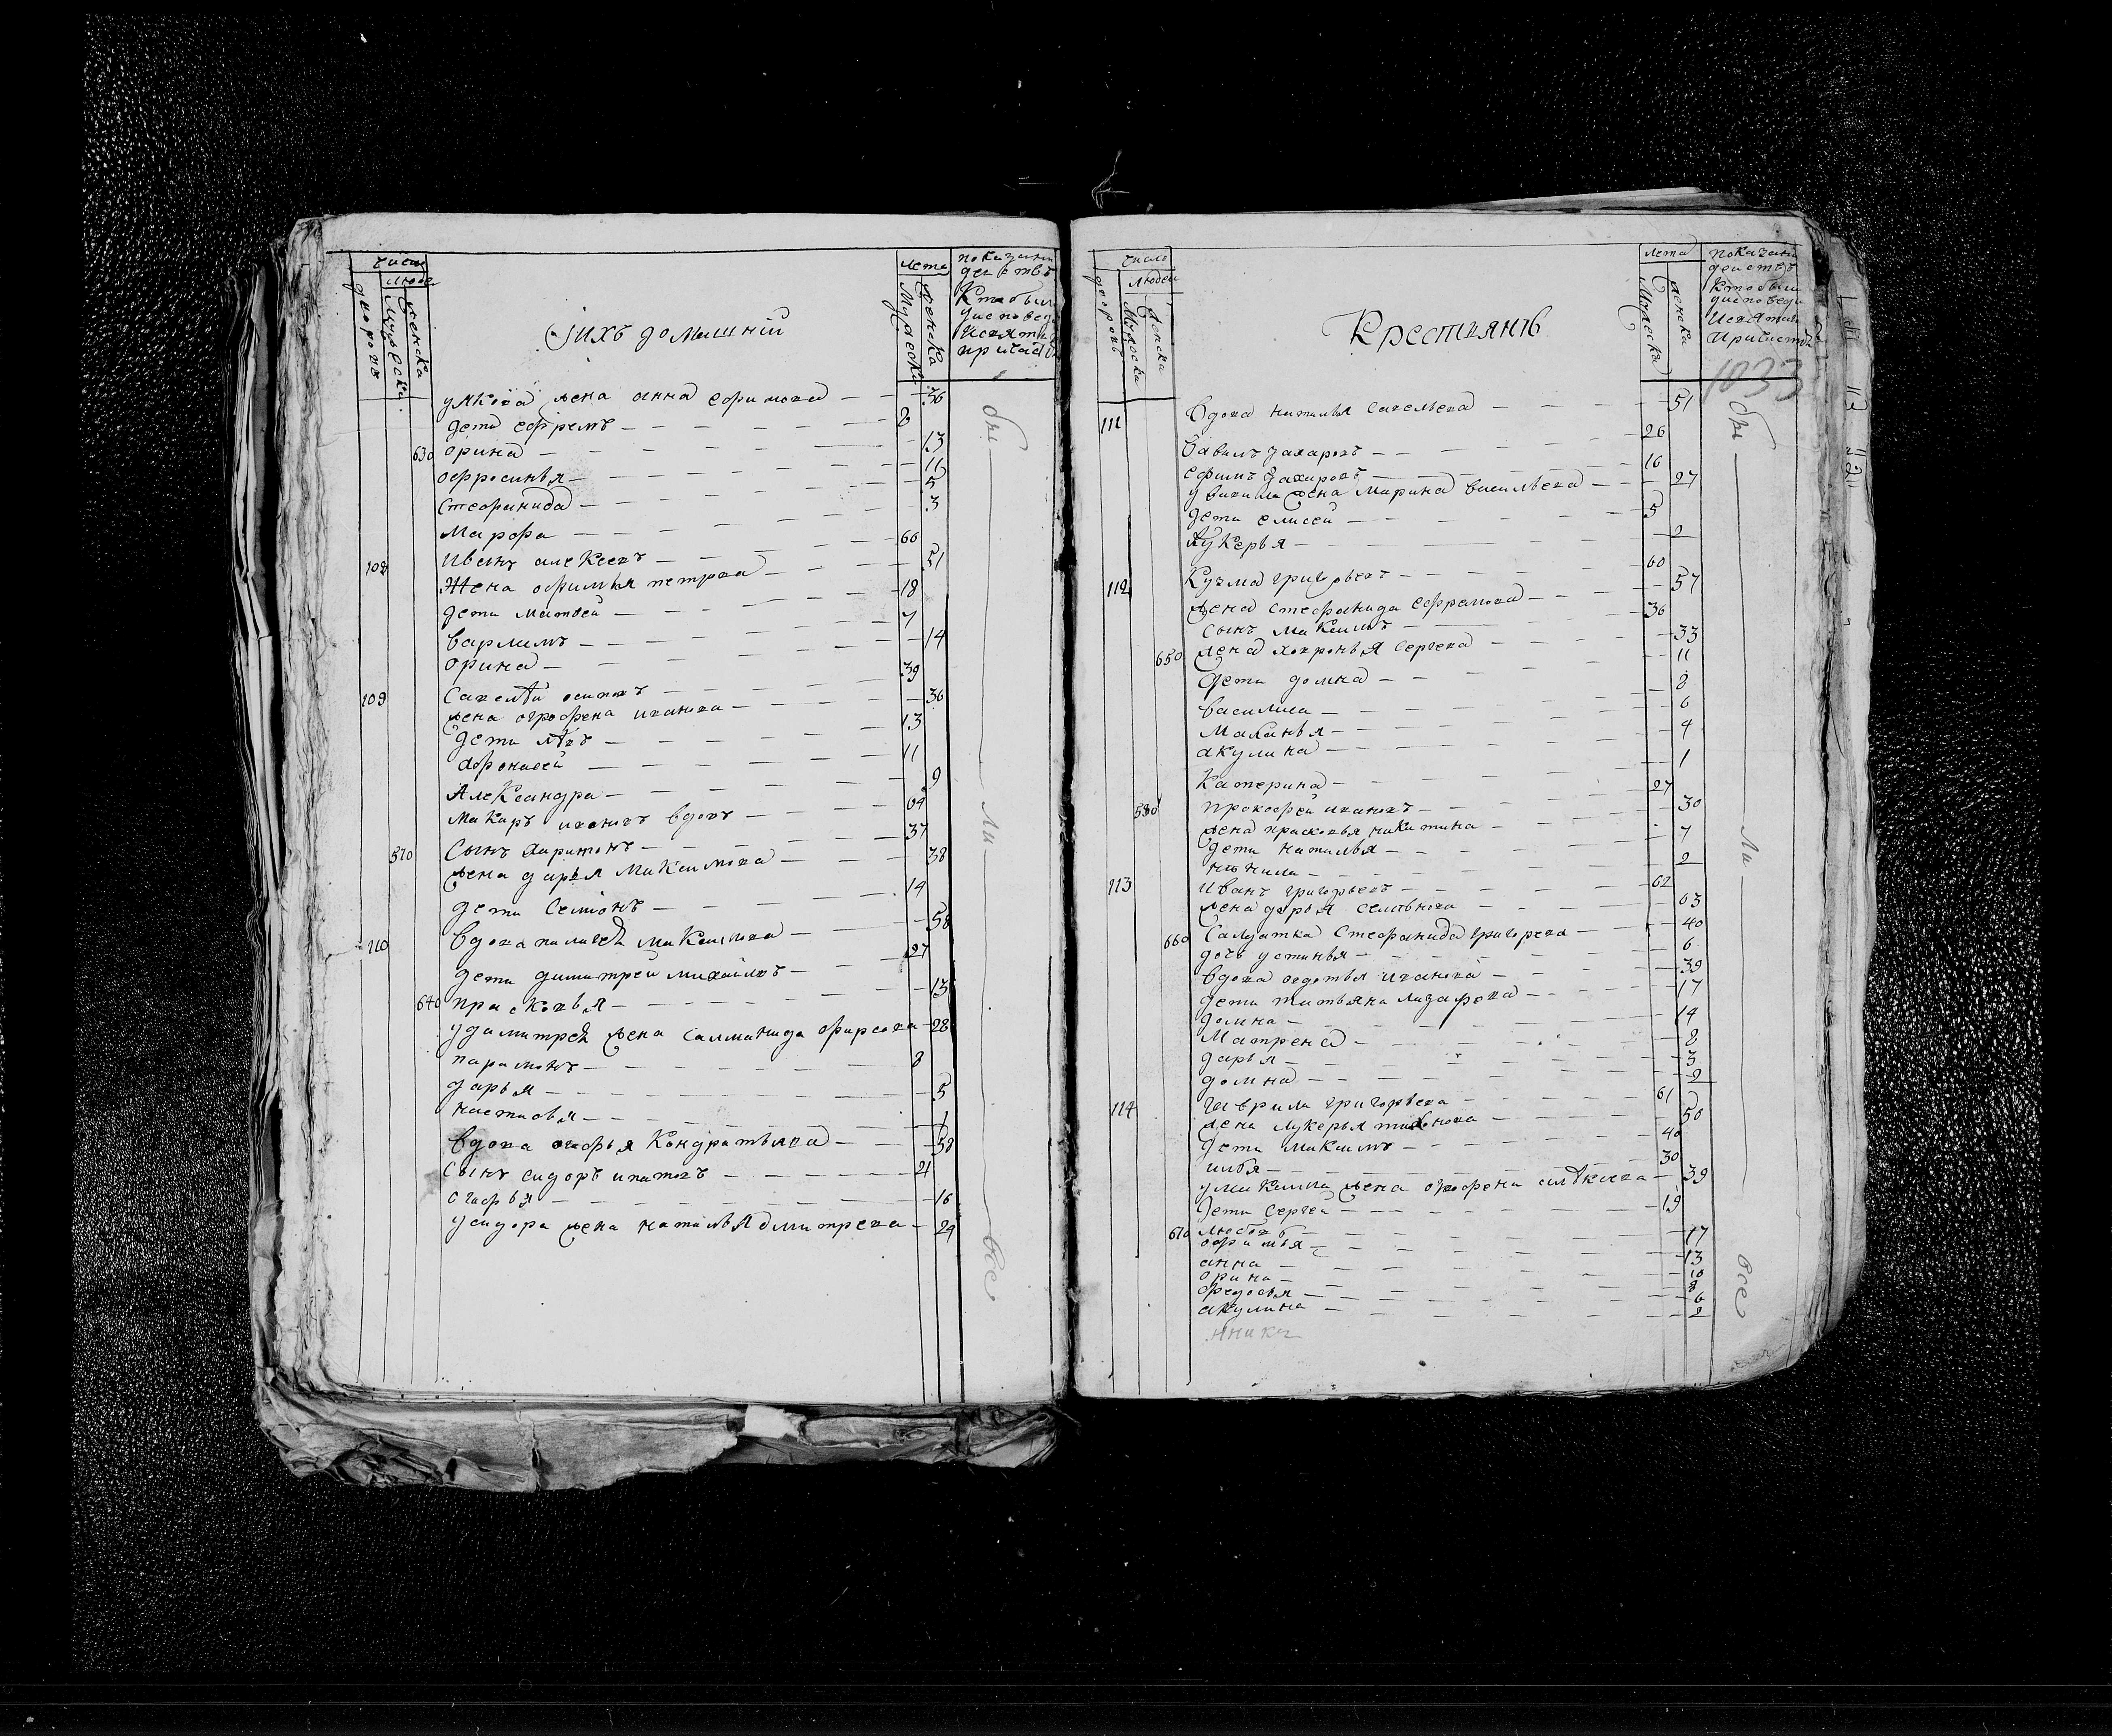 число
людей
дворовъ
мужеска
женска
Ихъ домашнiи
лета
мужеска
женска
показани
действъ
Кто были
у исповеди
И святаго
причастия
у Якова жена анна ефимова — 36
дети ефремъ — 8
630 орина — 13
офросинья — 11
Стефанида — 5
Марфа — 3
108 Иванъ алексеевъ — 66
Жена офимья петрова — 51
дети матвей — 18
варламъ — 7
орина — 14
109 Савелей осиповъ — 39
жена огрофена иванова — 36
дети левъ — 13
афонасей — 11
Александра — 9
Макаръ ивановъ вдовъ — 64
570 Сынъ харитонъ — 37
жена дарья Максимова — 38
дети Семионъ — 14
110 Вдова палагея Максимова — 58
дети димитрей михайловъ — 27
640 прасковья — 13
у дмитрея жена Саломанида фирсова — 28
парамонъ — 8
дарья — 5
настасья — 1
Вдова агафья Кондратьева — 58
Сынъ сидоръ ипатовъ — 21
агафья — 16
у сидора жена наталья дмитрева — 24
бы ли все
число
людей
дворовъ
мужеска
женска
Крестьянъ
лета
мужеска
женска
показани
действъ
Кто были
у исповеди
И святаго
причастия
1033
111 Вдова наталья Савельева — 51
Вавилъ Захаровъ — 26
ефимъ Захаровъ — 16
у вавила жена Марина васильева — 27
дети елисей — 5
лукерья — 2
112 Кузма григорьевъ — 60
жена Стефанида ефремова — 57
Сынъ Максимъ — 36
650 жена ховронья Сергева — 33
дети домна — 11
василиса — 8
Маланья — 6
акулина — 4
Катерина — 1
580 прокофей ивановъ — 27
жена прасковья никитина — 30
дети наталья — 7
ненила — 2
113 Иванъ григорьевъ — 62
жена дарья семенова — 63
660 Салдатка Стефанида григорева — 40
дочь устинья — 6
вдова федотья иванова — 39
дети татьяна лазарева — 17
домна — 14
Матрена — 8
дарья — 3
домна — 2
114 Гаврила григорьева — 61
жена лукерья тихонова — 50
дети Максимъ — 40
илья — 30
у максима жена огрофена алексева — 39
дети Сергей — 19
670 любовь — 17
офимья — 13
анна — 10
орина — 8
федосья — 6
акулина — 2
бы ли все